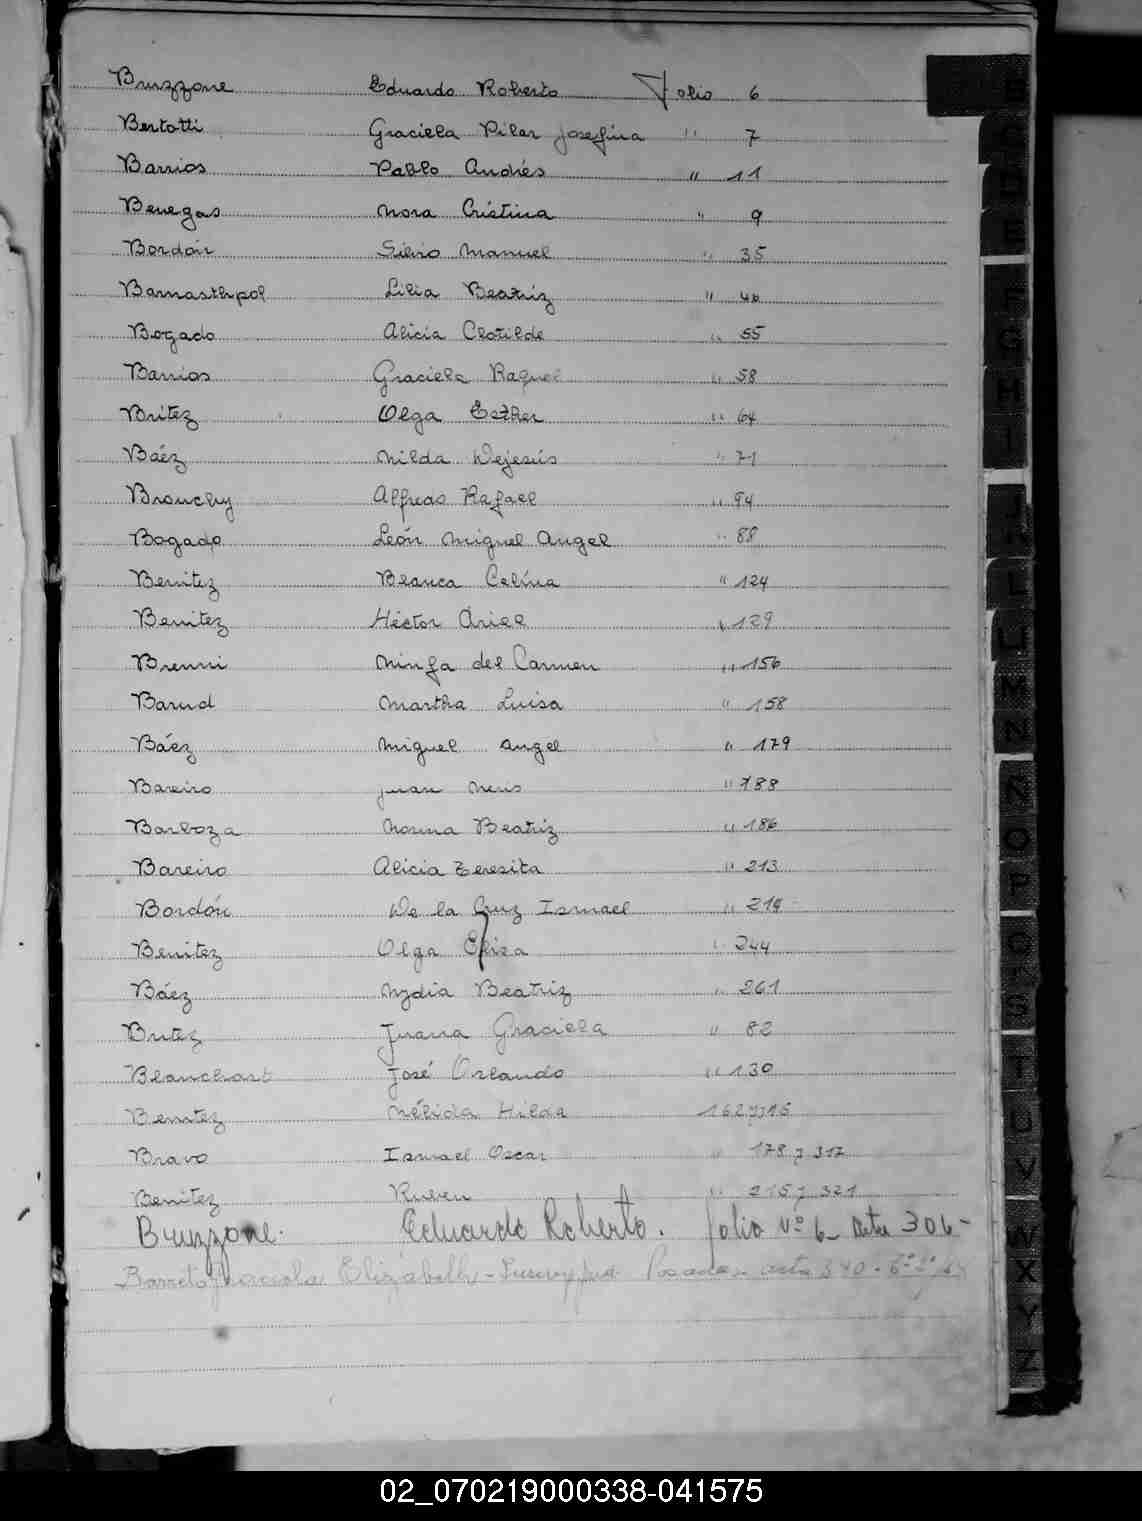 Bruzzone Eduardo Roberto Folio 6
Bertotti Graciela Pilar Josefina " 7
Barrios Pablo Andrés " 11
Benegas Nora Cristina " 9
Bordón Silvio Manuel " 35
Barnasthpol Lilia Beatriz " 46
Bogado Alicia Clotilde " 55
Barrios Graciela Raquel " 58
Britez Olga Esther " 64
Báez Nilda Dejesús " 71
Brouchy Alfredo Rafael " 94
Bogado León Miguel Angel " 88
Benitez Blanca Celina " 124
Benitez Héctor Ariel " 129
Brenni Ninfa del Carmen " 156
Barud Martha Luisa " 158
Báez Miguel Angel " 179
Bareiro Juan Neris " 188
Barboza Norma Beatriz " 186
Bareiro Alicia Teresita " 213
Bordón De la Cruz Ismael " 214
Benitez Olga Elisa " 244
Báez Nydia Beatriz " 261
Britez Juana Graciela " 82
Blanchart José Orlando " 130
Benitez Nélida Hilda 162 y
Bravo Ismael Oscar " 178 y 317
Benitez Ruben " 215 y 321
Bruzzone. Eduardo Roberto. folio Nº 6_ Acta 306-
Barreto Graciela Elizabeth - Posadas - acta 340 -
B
C
D
E
F
G
H
I
J
K
L
LL
M
N
Ñ
O
P
Q
R
S
T
U
V
W
X
Y
Z
02_070219000338-041575